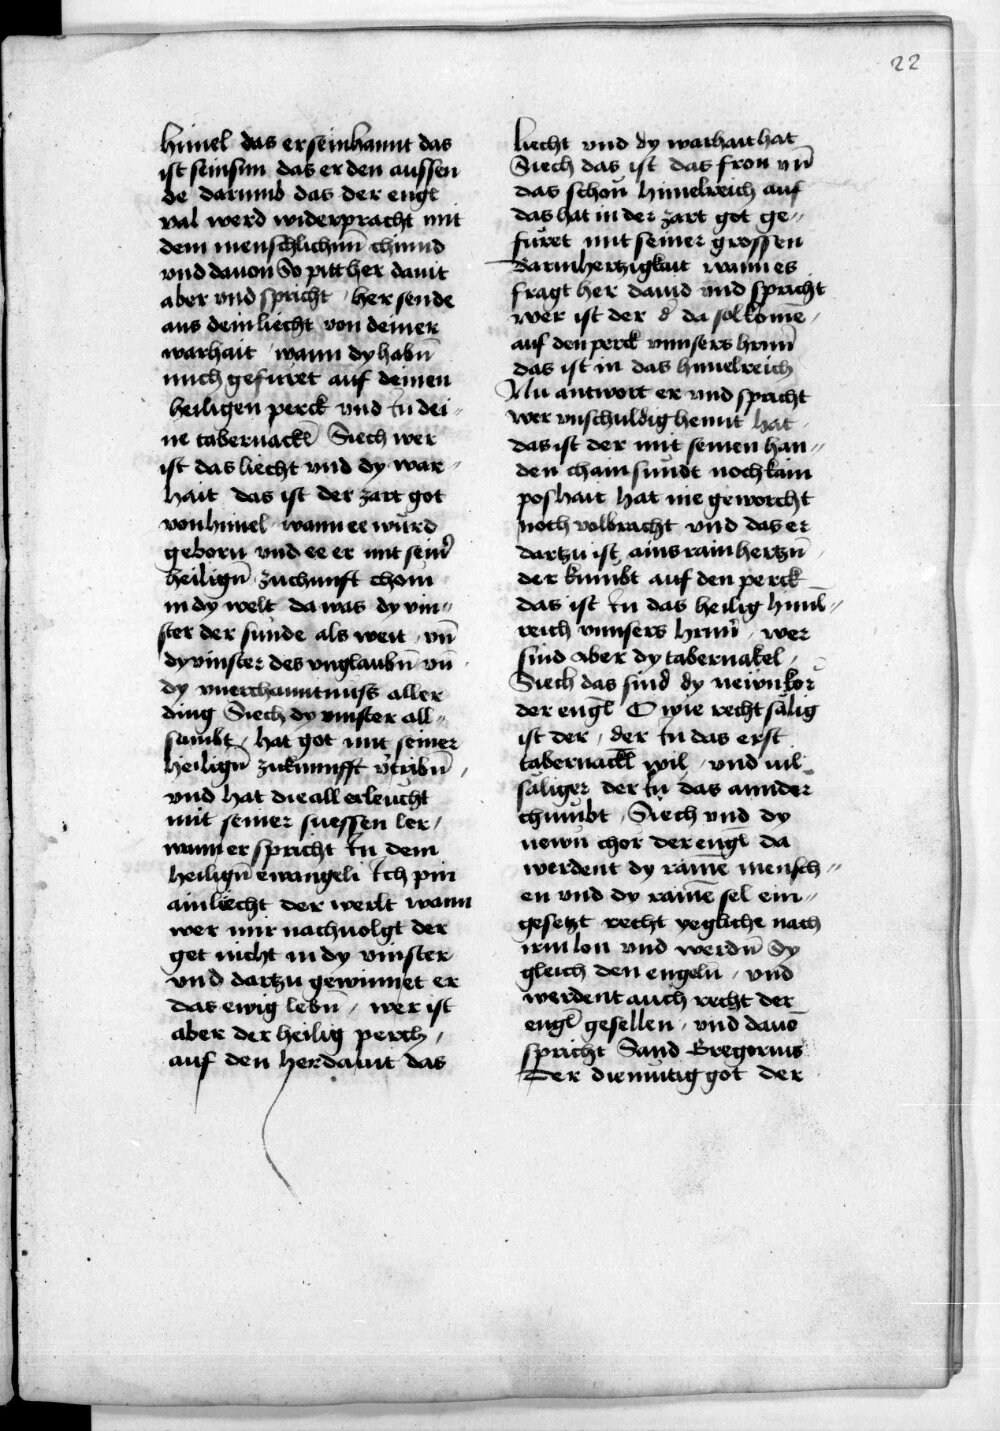 22
himel das er sein hannt das
ist sein sun das er den aussen
de darumb das der engl
val werd widerpracht mit
dem menschlichmͫ chunnd
vnd dauon So pitt her dauit
aber vnd spricht her sende
aus dein liecht von deiner
warhait wann dy habn̄
mich gefuret auf deinen
heiligen perck vnd in dei„
ne tabernackl̄ Siech wer
ist das liecht vnd dy war„
hait das ist der zart got
von himel wann ee wurd
geborn vnd ee er mit sein̄
heilign̄ zuchunft chom
in dy welt da was dy vin„
ster der sunde als weit vn̄
dy vinster des vnglaubn̄ vn̄
dy vnerchanntnuss aller
ding Siech dy vinster all„
sambt hat got mit seiner
heilign̄ zukunnfft v̉tribn̄
vnd hat die all erleucht
mit seiner suessen ler
wann er spricht in dem
heilign̄ ewangeli Ich pin
ain liecht der werlt wann
wer mir nachuolgt der
get nicht in dy vinster
vnd dartzu gewinnet er
das ewig lebn̄ wer ist
aber der heilig perch
auf den her dauit das
liecht vnd dy warhait hat
Siech das ist das fron vn̄
das schon himelreich auf
das hat in der zart got ge„
furet mit seiner grossen
Barmhertzigkait wann es
fragt her dauid vnd spricht
wer ist der d̉ da sol komē
auf den perck vnnsers hrnn̄
das ist in das himelreich
Nu antwort er vnd spricht
wer vnschuldig hennt hat
das ist der mit seinen han„
den chain sundt noch kain
poshait hat nie geworcht
noch volbracht vnd das er
dartzu ist ains rain hertzn̄
der kumbt auf den perck
das ist in das heilig himl̄„
reich vnnsers hrnn̄ wer
sind aber dy tabernakel
Siech das sind dy newn kor̄
der engl̄ O wie recht sälig
ist der der in das erst
tabernackl̄ wil vnd vil
säliger der in das annder
chumbt Siech vnd dy
newn chor der engl̄ da
werdent dy rainē mensch„
en vnd dy rainē sel ein„
gesetzt recht yegliche nach
irm lon vnd werdn̄ Sy
gleich den engeln vnd
werdent auch recht der
engl̄ gesellen vnd dauō
spricht Sand Gregorius
Der diemütig got der